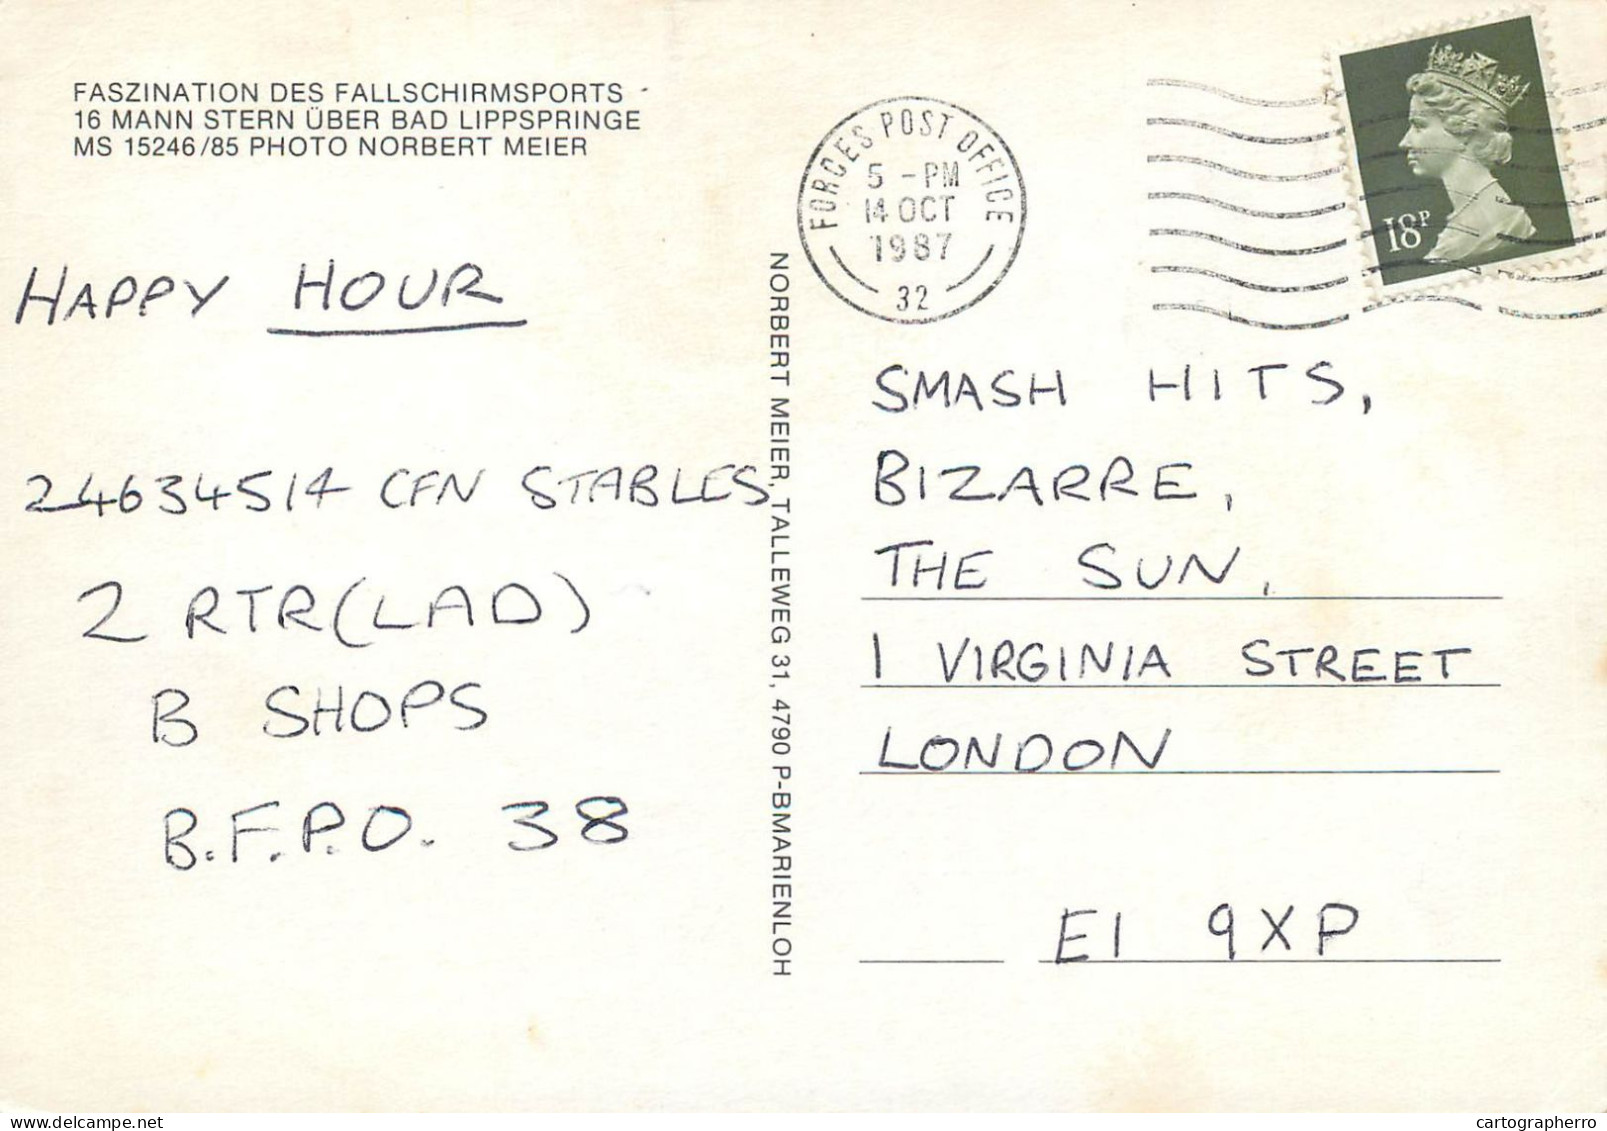 FASZINATION DES FALLSCHIRMSPORTS
16 MANN STERN ÜBER BAD LIPPSPRINGE
MS 15246/85 PHOTO NORBERT MEIER
HAPPY HOUR
24634514 CFN STABLES
2 RTR (LAD)
B SHOPS
B.F.P.O. 38
NORBERT MEIER, TALLEWEG 31, 4790 P-BMARIENLOH
FORCES POST OFFICE
5 - PM
14 OCT
1987
32
18P
SMASH HITS,
BIZARRE,
THE SUN,
1 VIRGINIA STREET
LONDON
E1 9XP
cartographerro